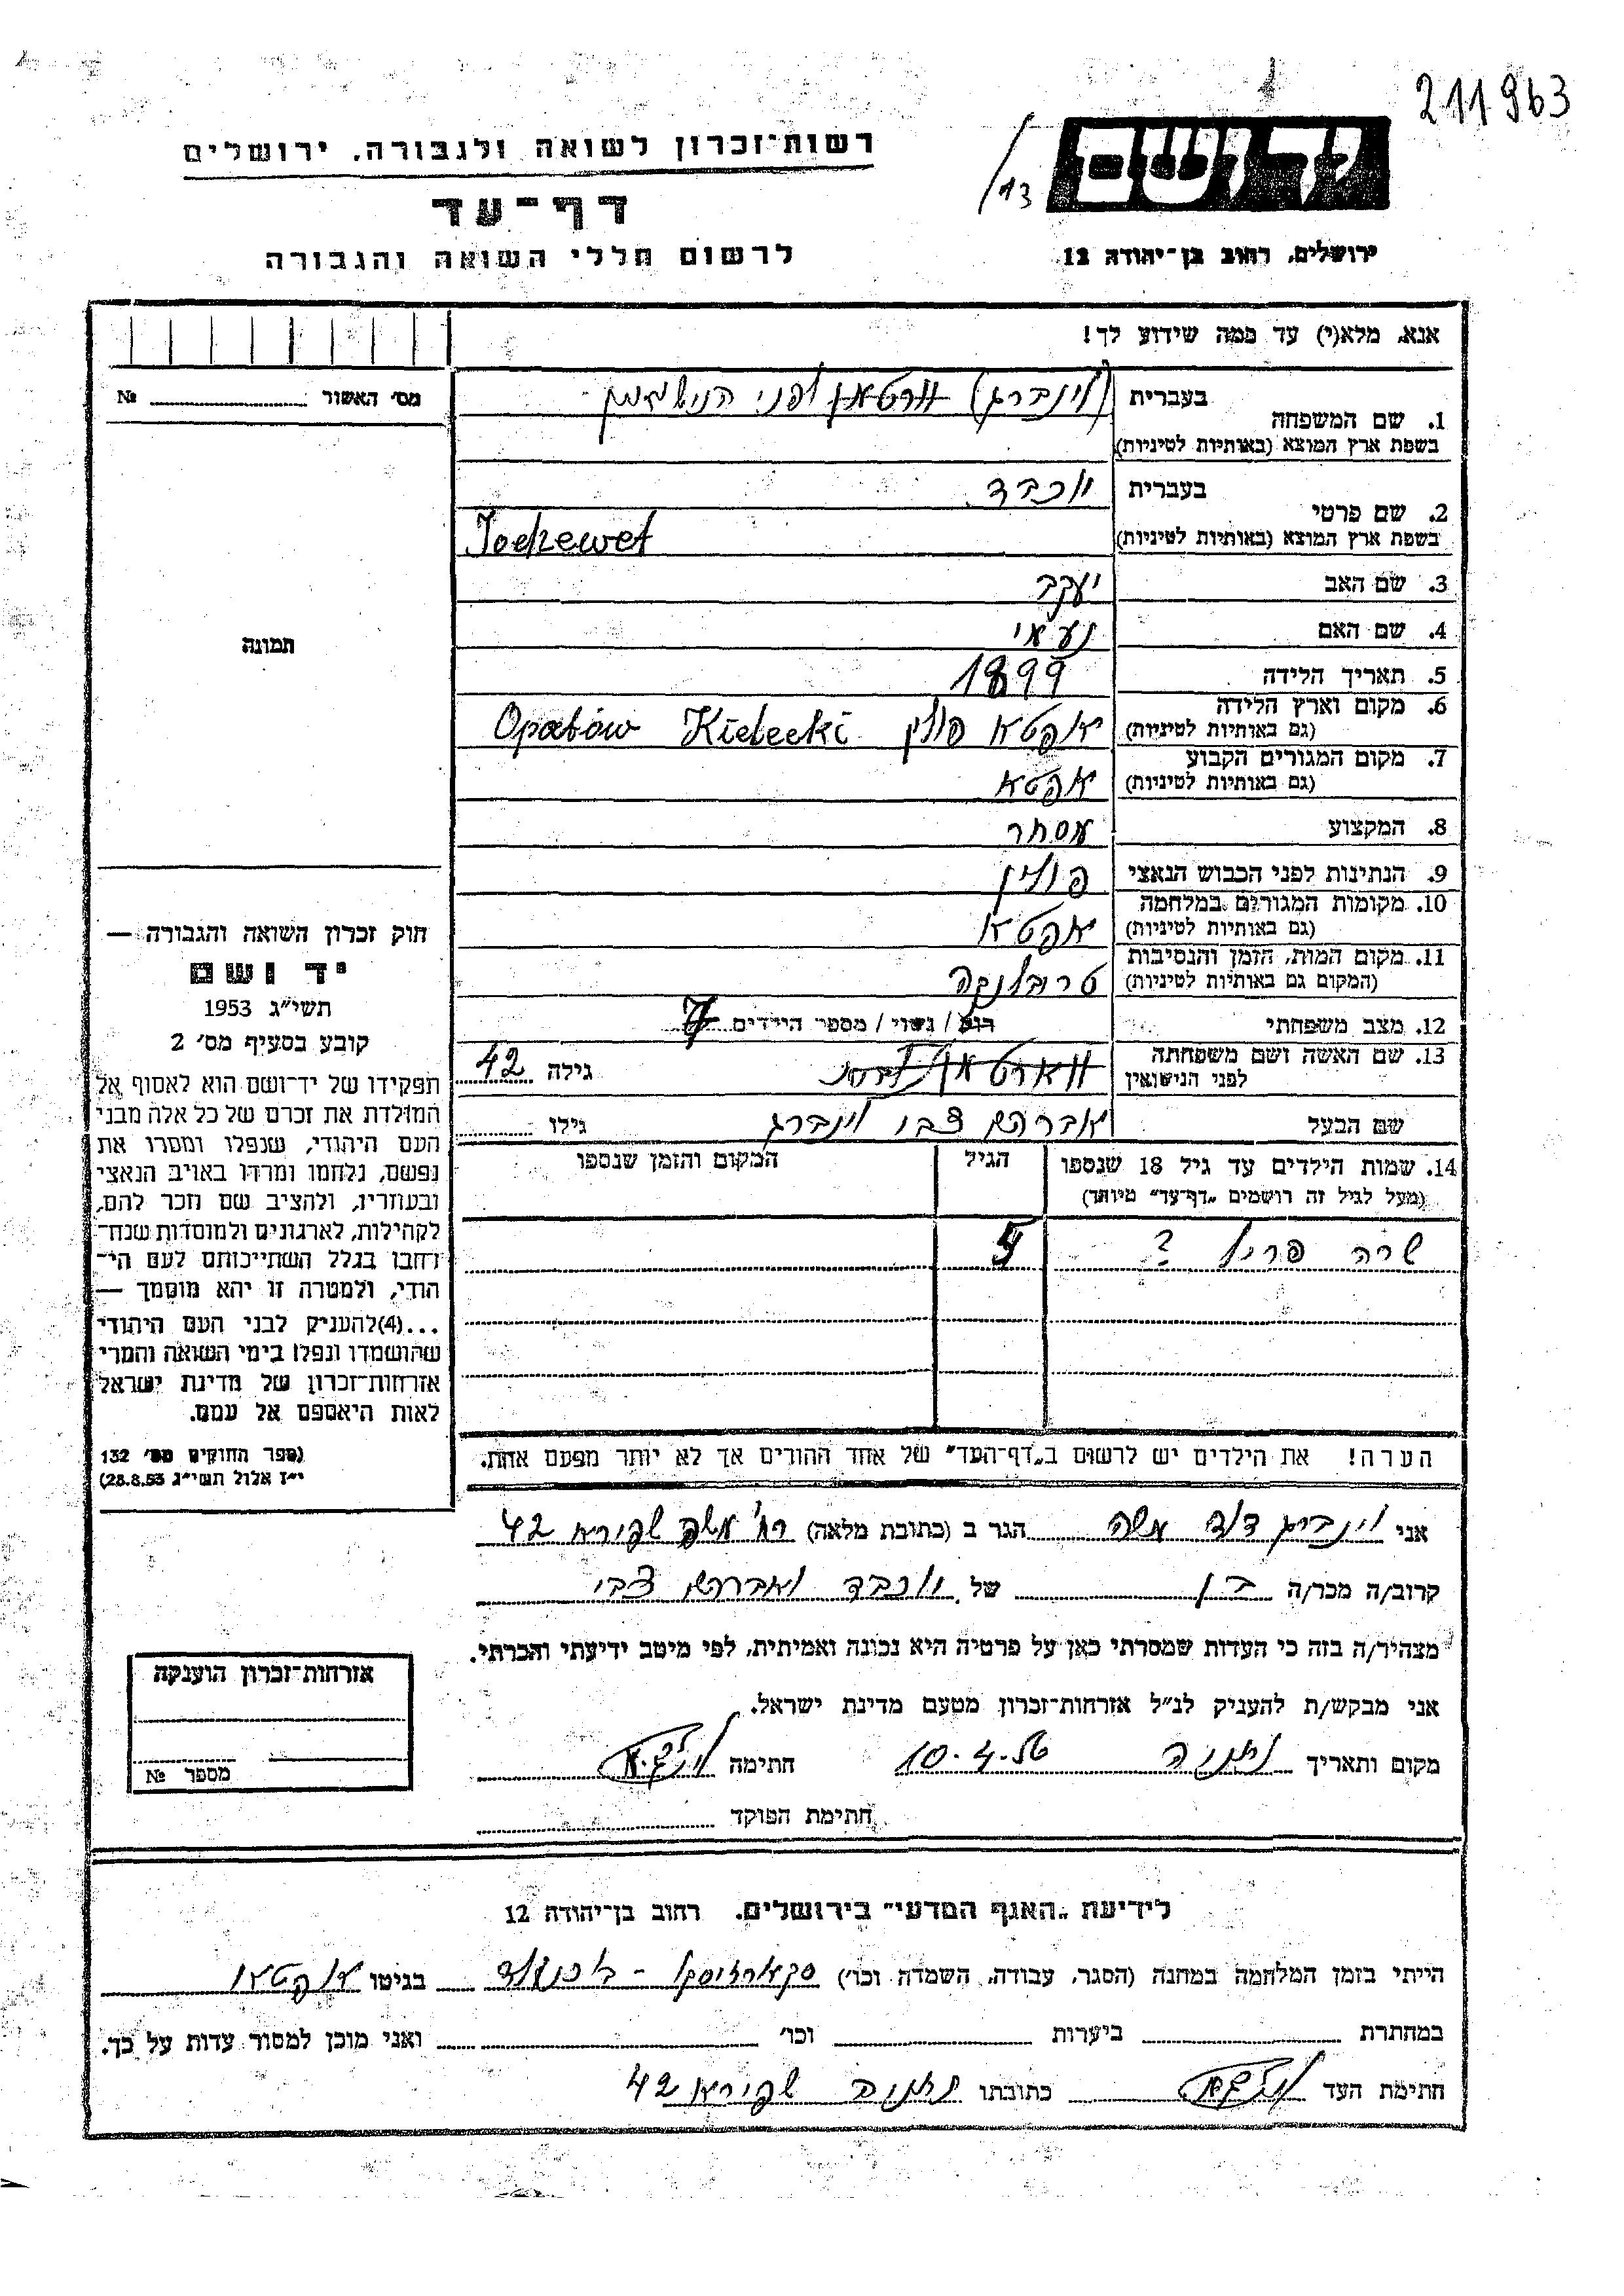 211963
/13
יד ושם
רשות־זכרון לשואה ולגבורה, ירושלים
דף־עד
ירושלים, רחוב בן־יהודה 12
לרשום חללי השואה והגבורה
אנא, מלא(י) עד כמה שידוע לך!
מס׳ האשור № 
1. שם המשפחה בעברית (וינברג) וורטמן לפני הנישואין
בשפת ארץ המוצא (באותיות לטיניות)
2. שם פרטי בעברית יוכבד
בשפת ארץ המוצא (באותיות לטיניות) Jochewet
3. שם האב יעקב
4. שם האם נעמי
תמונה
5. תאריך הלידה 1899
6. מקום וארץ הלידה (גם באותיות לטיניות) אפטא פולין Opatów Kielecki
7. מקום המגורים הקבוע (גם באותיות לטיניות) אפטא
8. המקצוע מסחר
9. הנתינות לפני הכבוש הנאצי פולין
10. מקומות המגורים במלחמה (גם באותיות לטיניות) אפטא
11. מקום המות, הזמן והנסיבות (המקום גם באותיות לטיניות) טרבלינקה
12. מצב משפחתי רוק / נשוי / מספר הילדים 7
13. שם האשה ושם משפחתה לפני הנישואין גילה 42
שם הבעל אברהם צבי וינברג גילו
14. שמות הילדים עד גיל 18 שנספו הגיל המקום והזמן שנספו
(מעל לגיל זה רושמים „דף־עד״ מיוחד)
שרה ? 5
הערה! את הילדים יש לרשום ב„דף־העד״ של אחד ההורים אך לא יותר מפעם אחת.
חוק זכרון השואה והגבורה —
יד ושם
תשי״ג 1953
קובע בסעיף מס׳ 2
תפקידו של יד־ושם הוא לאסוף אל
המולדת את זכרם של כל אלה מבני
העם היהודי, שנפלו ומסרו את
נפשם, נלחמו ומרדו באויב הנאצי
ובעוזריו, ולהציב שם וזכר להם,
לקהילות, לארגונים ולמוסדות שנח־
רבו בגלל השתייכותם לעם הי־
הודי, ולמטרה זו יהא מוסמך —
...(4)להעניק לבני העם היהודי
שהושמדו ונפלו בימי השואה והמרי
אזרחות־זכרון של מדינת ישראל
לאות היאספם אל עמם.
(ספר החוקים מס׳ 132
י״ז אלול תשי״ג 28.8.53)
אני וינברג דוד משה הגר ב (כתובת מלאה) רח׳ משה שפירא 42
קרוב/ה מכר/ה בן של יוכבד ואברהם צבי
מצהיר/ה בזה כי העדות שמסרתי כאן על פרטיה היא נכונה ואמיתית, לפי מיטב ידיעתי והכרתי.
אני מבקש/ת להעניק לנ״ל אזרחות־זכרון מטעם מדינת ישראל.
מקום ותאריך נתניה 10.4.56 חתימה
חתימת הפוקד
אזרחות־זכרון הוענקה
מספר №
לידיעת „האגף המדעי״ בירושלים. רחוב בן־יהודה 12
הייתי בזמן המלחמה במחנה (הסגר, עבודה, השמדה וכו׳) - בוכנולד בגיטו אופטאו
במחתרת ביערות וכו׳ ואני מוכן למסור עדות על כך.
חתימת העד כתובתו נתניה שפירא 42